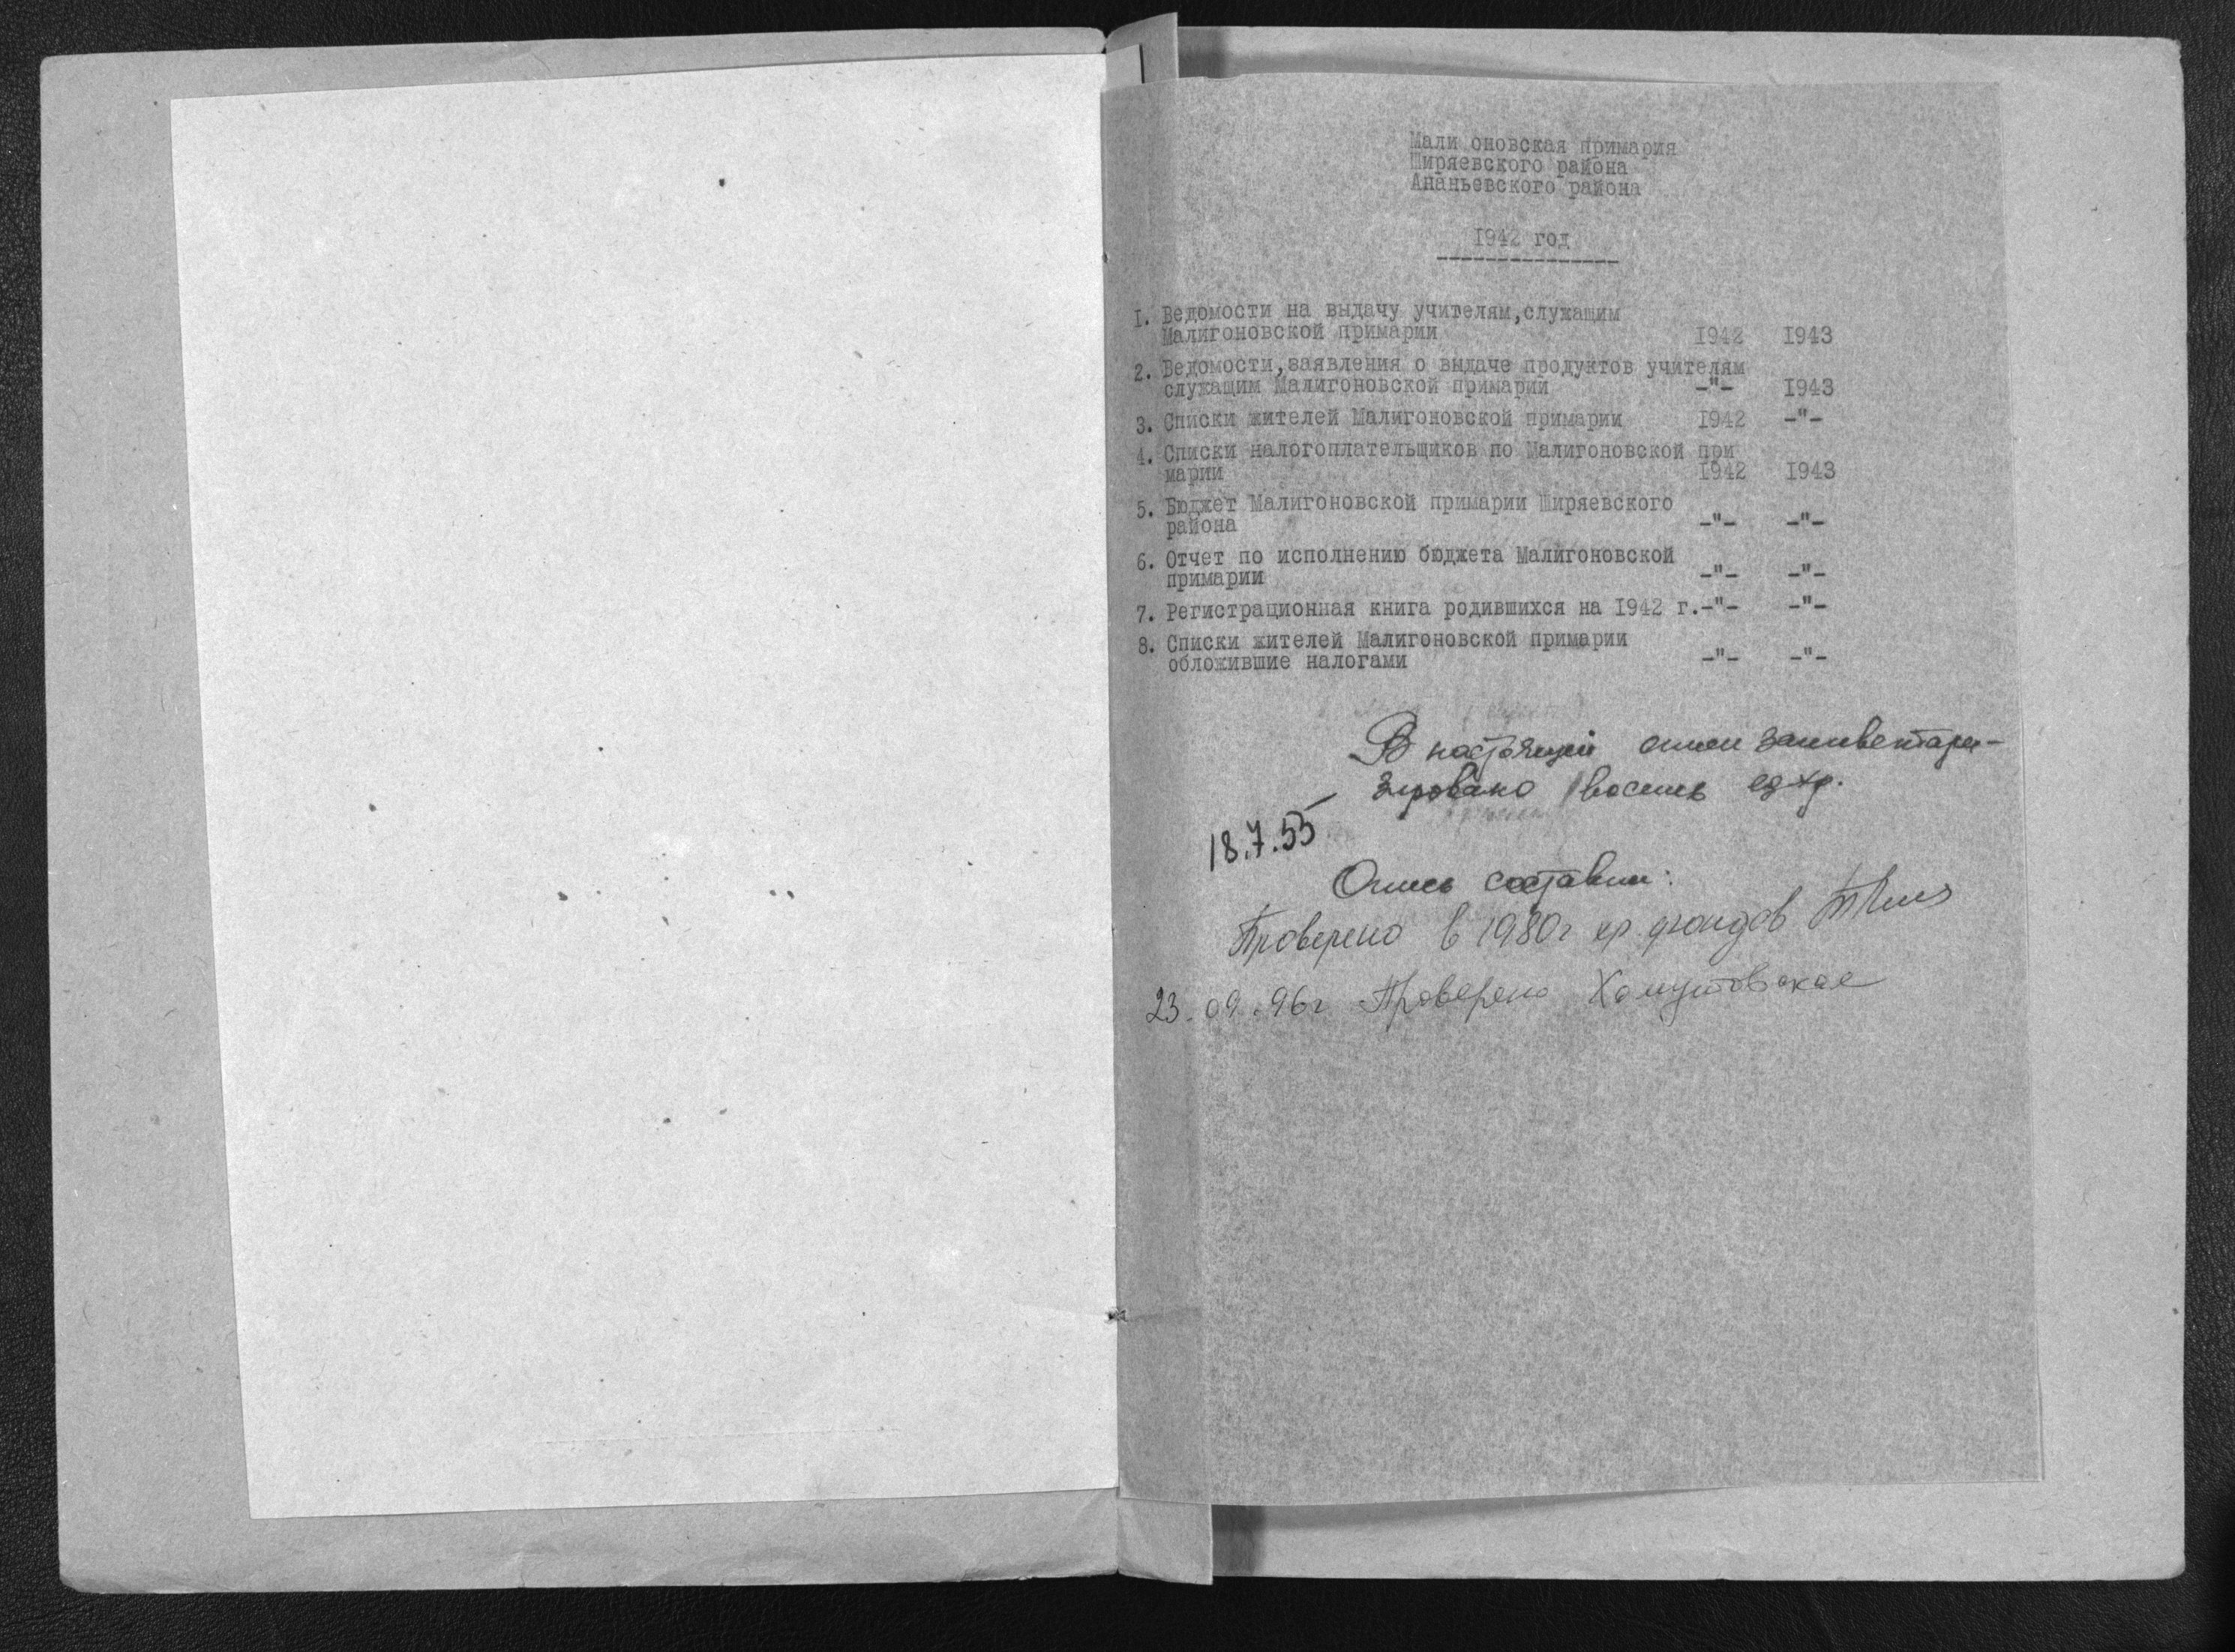 Мали оновская примария
Ширяевского района
Ананьевского района
1942 год
---------------
1. Ведомости на выдачу учителям,служащим
Малигоновской примарии 1942 1943
2. Ведомости,заявления о выдаче продуктов учителям
служащим Малигоновской примарии -"- 1943
3. Списки жителей Малигоновской примарии 1942 -"-
4. Списки налогоплательщиков по Малигоновской при
марии 1942 1943
5. Бюджет Малигоновской примарии Ширяевского
района -"- -"-
6. Отчет по исполнению бюджета Малигоновской
примарии -"- -"-
7. Регистрационная книга родившихся на 1942 г.-"- -"-
8. Списки жителей Малигоновской примарии
обложившие налогами -"- -"-
В настоящей описи заинвентари-
зировано восемь ед.хр.
18.7.55
Опись составил:
Проверено в 1980г хр. фондов
23.09.96г Проверено Хомутовская